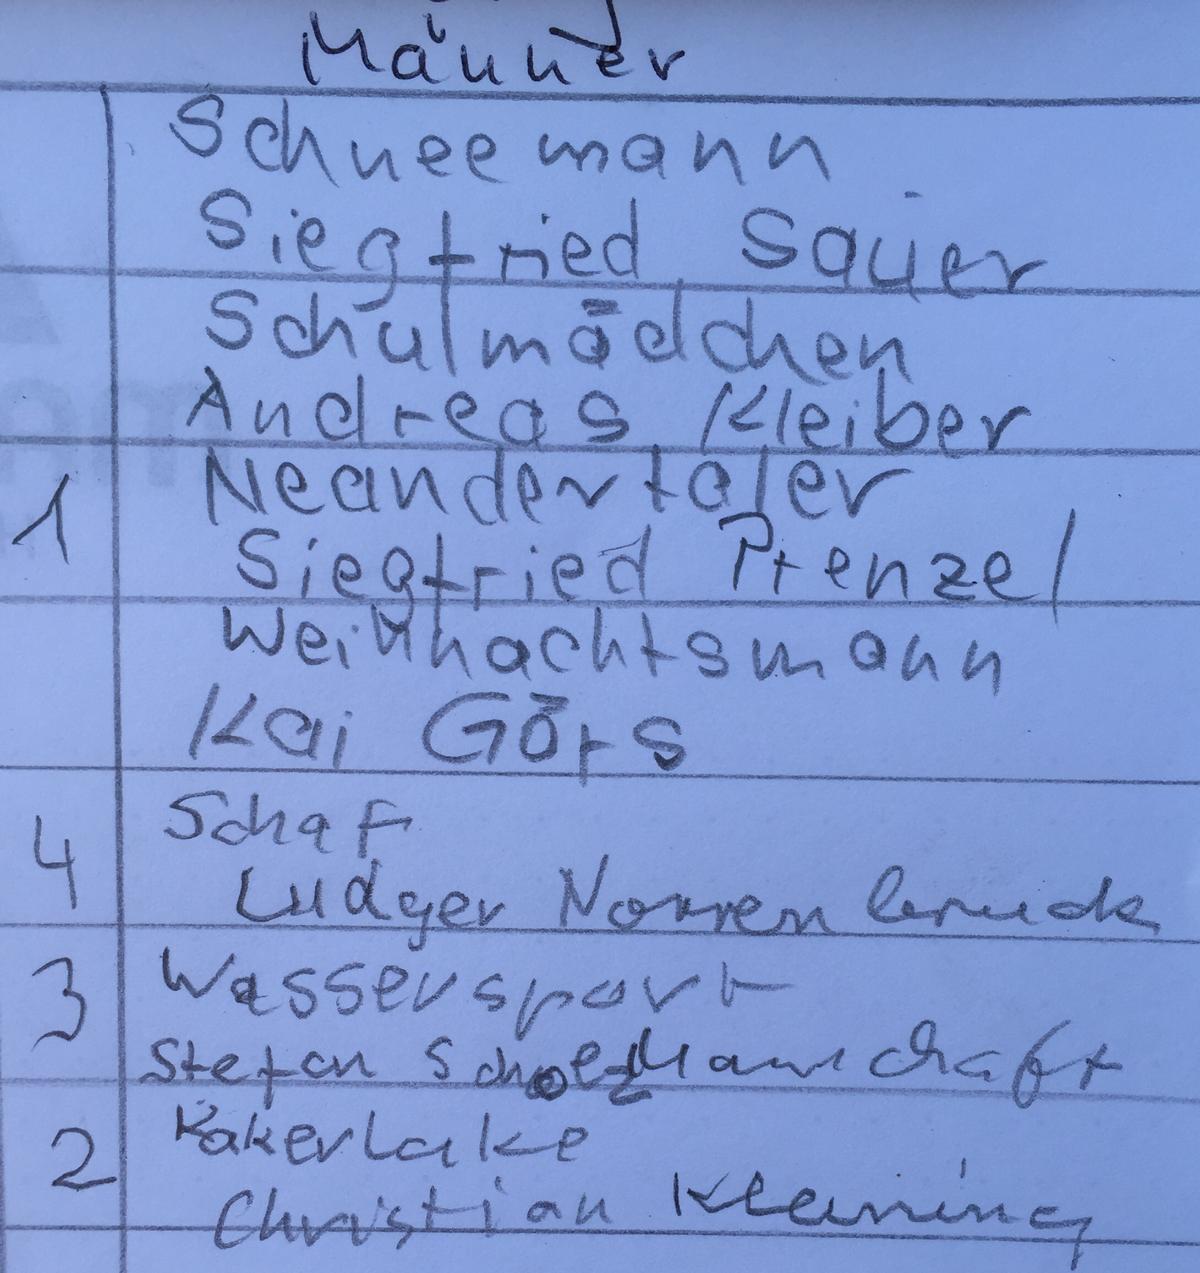 Männer
Schneemann
Siegfried Sauer
Schulmädchen
Andreas Kleiber
1 Neandertaler
Siegfried Prenzel
Weihnachtsmann
Kai Görs
4 Schaf
Ludger Norrenbrock
3 Wassersport
Stefan Mannschaft
2 Kakerlake
Christian Kleining